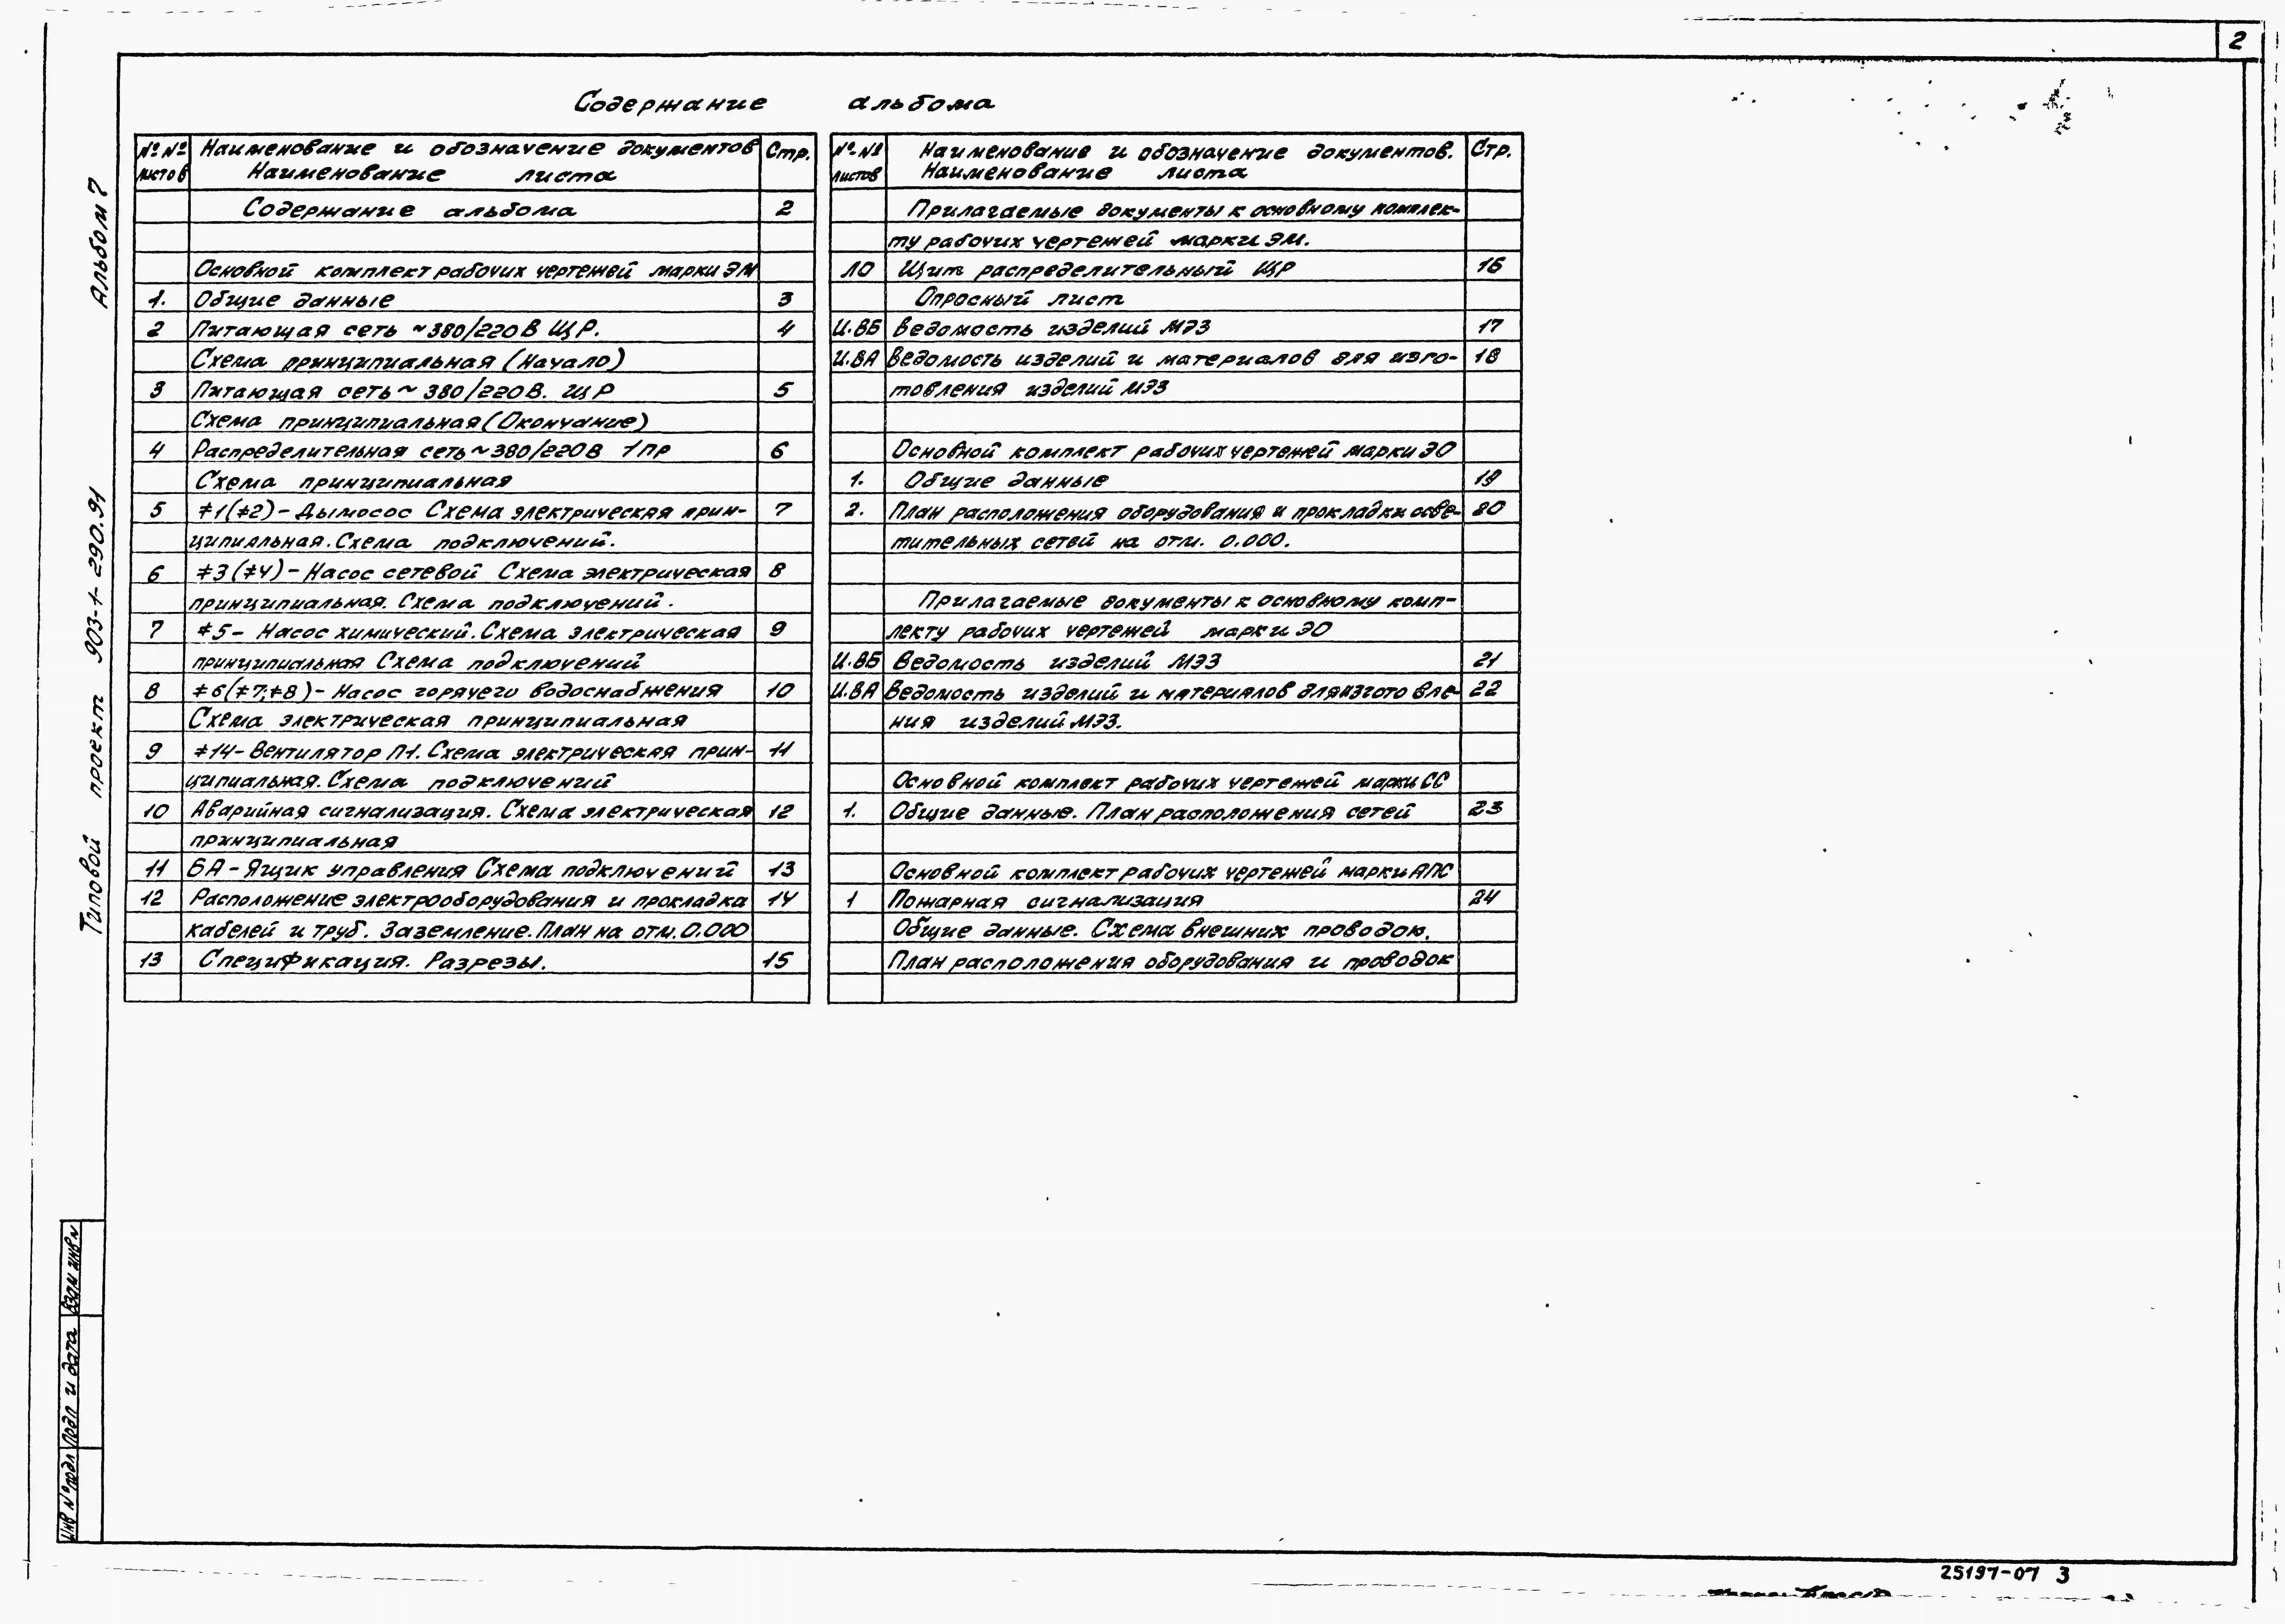 2
Содержание альбома
№№ листов Наименование и обозначение документов Наименование листа Стр.
Содержание альбома 2
Основной комплект рабочих чертежей марки ЭМ
1. Общие данные 3
2 Питающая сеть ~380/220В ЩР. 4
Схема принципиальная (Начало)
3 Питающая сеть ~ 380/220В. ЩР 5
Схема принципиальная (Окончание)
4 Распределительная сеть ~380/220В 1ПР 6
Схема принципиальная
5 ≠1(≠2)- Дымосос Схема электрическая прин- 7
ципиальная. Схема подключений.
6 ≠3(≠4)- Насос сетевой Схема электрическая 8
принципиальная. Схема подключений.
7 ≠5- Насос химический. Схема электрическая 9
принципиальная Схема подключений
8 ≠6(≠7;≠8)- Насос горячего водоснабжения 10
Схема электрическая принципиальная
9 ≠14- Вентилятор П1. Схема электрическая прин- 11
ципиальная. Схема подключений
10 Аварийная сигнализация. Схема электрическая 12
принципиальная
11 6А - Ящик управления Схема подключений 13
12 Расположение электрооборудования и прокладка 14
кабелей и труб. Заземление. План на отм. 0.000
13 Спецификация. Разрезы. 15
№№ листов Наименование и обозначение документов. Наименование листа Стр.
Прилагаемые документы к основному комплек-
ту рабочих чертежей марки ЭМ.
ЛО Щит распределительный ЩР 16
Опросный лист
И.ВБ Ведомость изделий МЭЗ 17
И.ВА Ведомость изделий и материалов для изго- 18
товления изделий МЭЗ
Основной комплект рабочих чертежей марки ЭО
1. Общие данные 19
2. План расположения оборудования и прокладки осве- 20
тительных сетей на отм. 0.000.
Прилагаемые документы к основному комп-
лекту рабочих чертежей марки ЭО
И.ВБ Ведомость изделий МЭЗ 21
И.ВА Ведомость изделий и материалов для изготовле- 22
ния изделий МЭЗ.
Основной комплект рабочих чертежей марки СС
1. Общие данные. План расположения сетей 23
Основной комплект рабочих чертежей марки АПС
1 Пожарная сигнализация 24
Общие данные. Схема внешних проводок.
План расположения оборудования и проводок
Типовой проект 903-1-290.91 Альбом 7
Инв № подл Подп и дата Взам инв №
25197-07 3